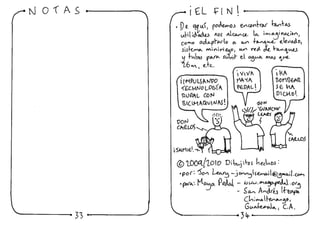 NOTAS
33
¡EL FIN!
• De aquí, podemos encontrar tantas
utilidades nos alcance la imaginación,
como adaptarlo a un tanque elevado,
sistema miniriego, un red de tanques
y tubos para subir el agua mas que
26m, etc.
¡IMPULSANDO
TECNOLOGÍA
RURAL CON
BICIMAQUINAS!
¡VIVA
MAYA
PEDAL!
¡HA
BOMBEAR
SE HA
DICHO!
DON
CARLOS
DON
LEARY
CARLOS
© 2009/2010 Dibujitos hechos:
•por: Jon Leary - jonnylsemail@gmail.com
•para: Maya Pedal - www.mayapedal.org
- San Andrés Itzapa
Chimaltenango,
Guatemala, C.A.
34